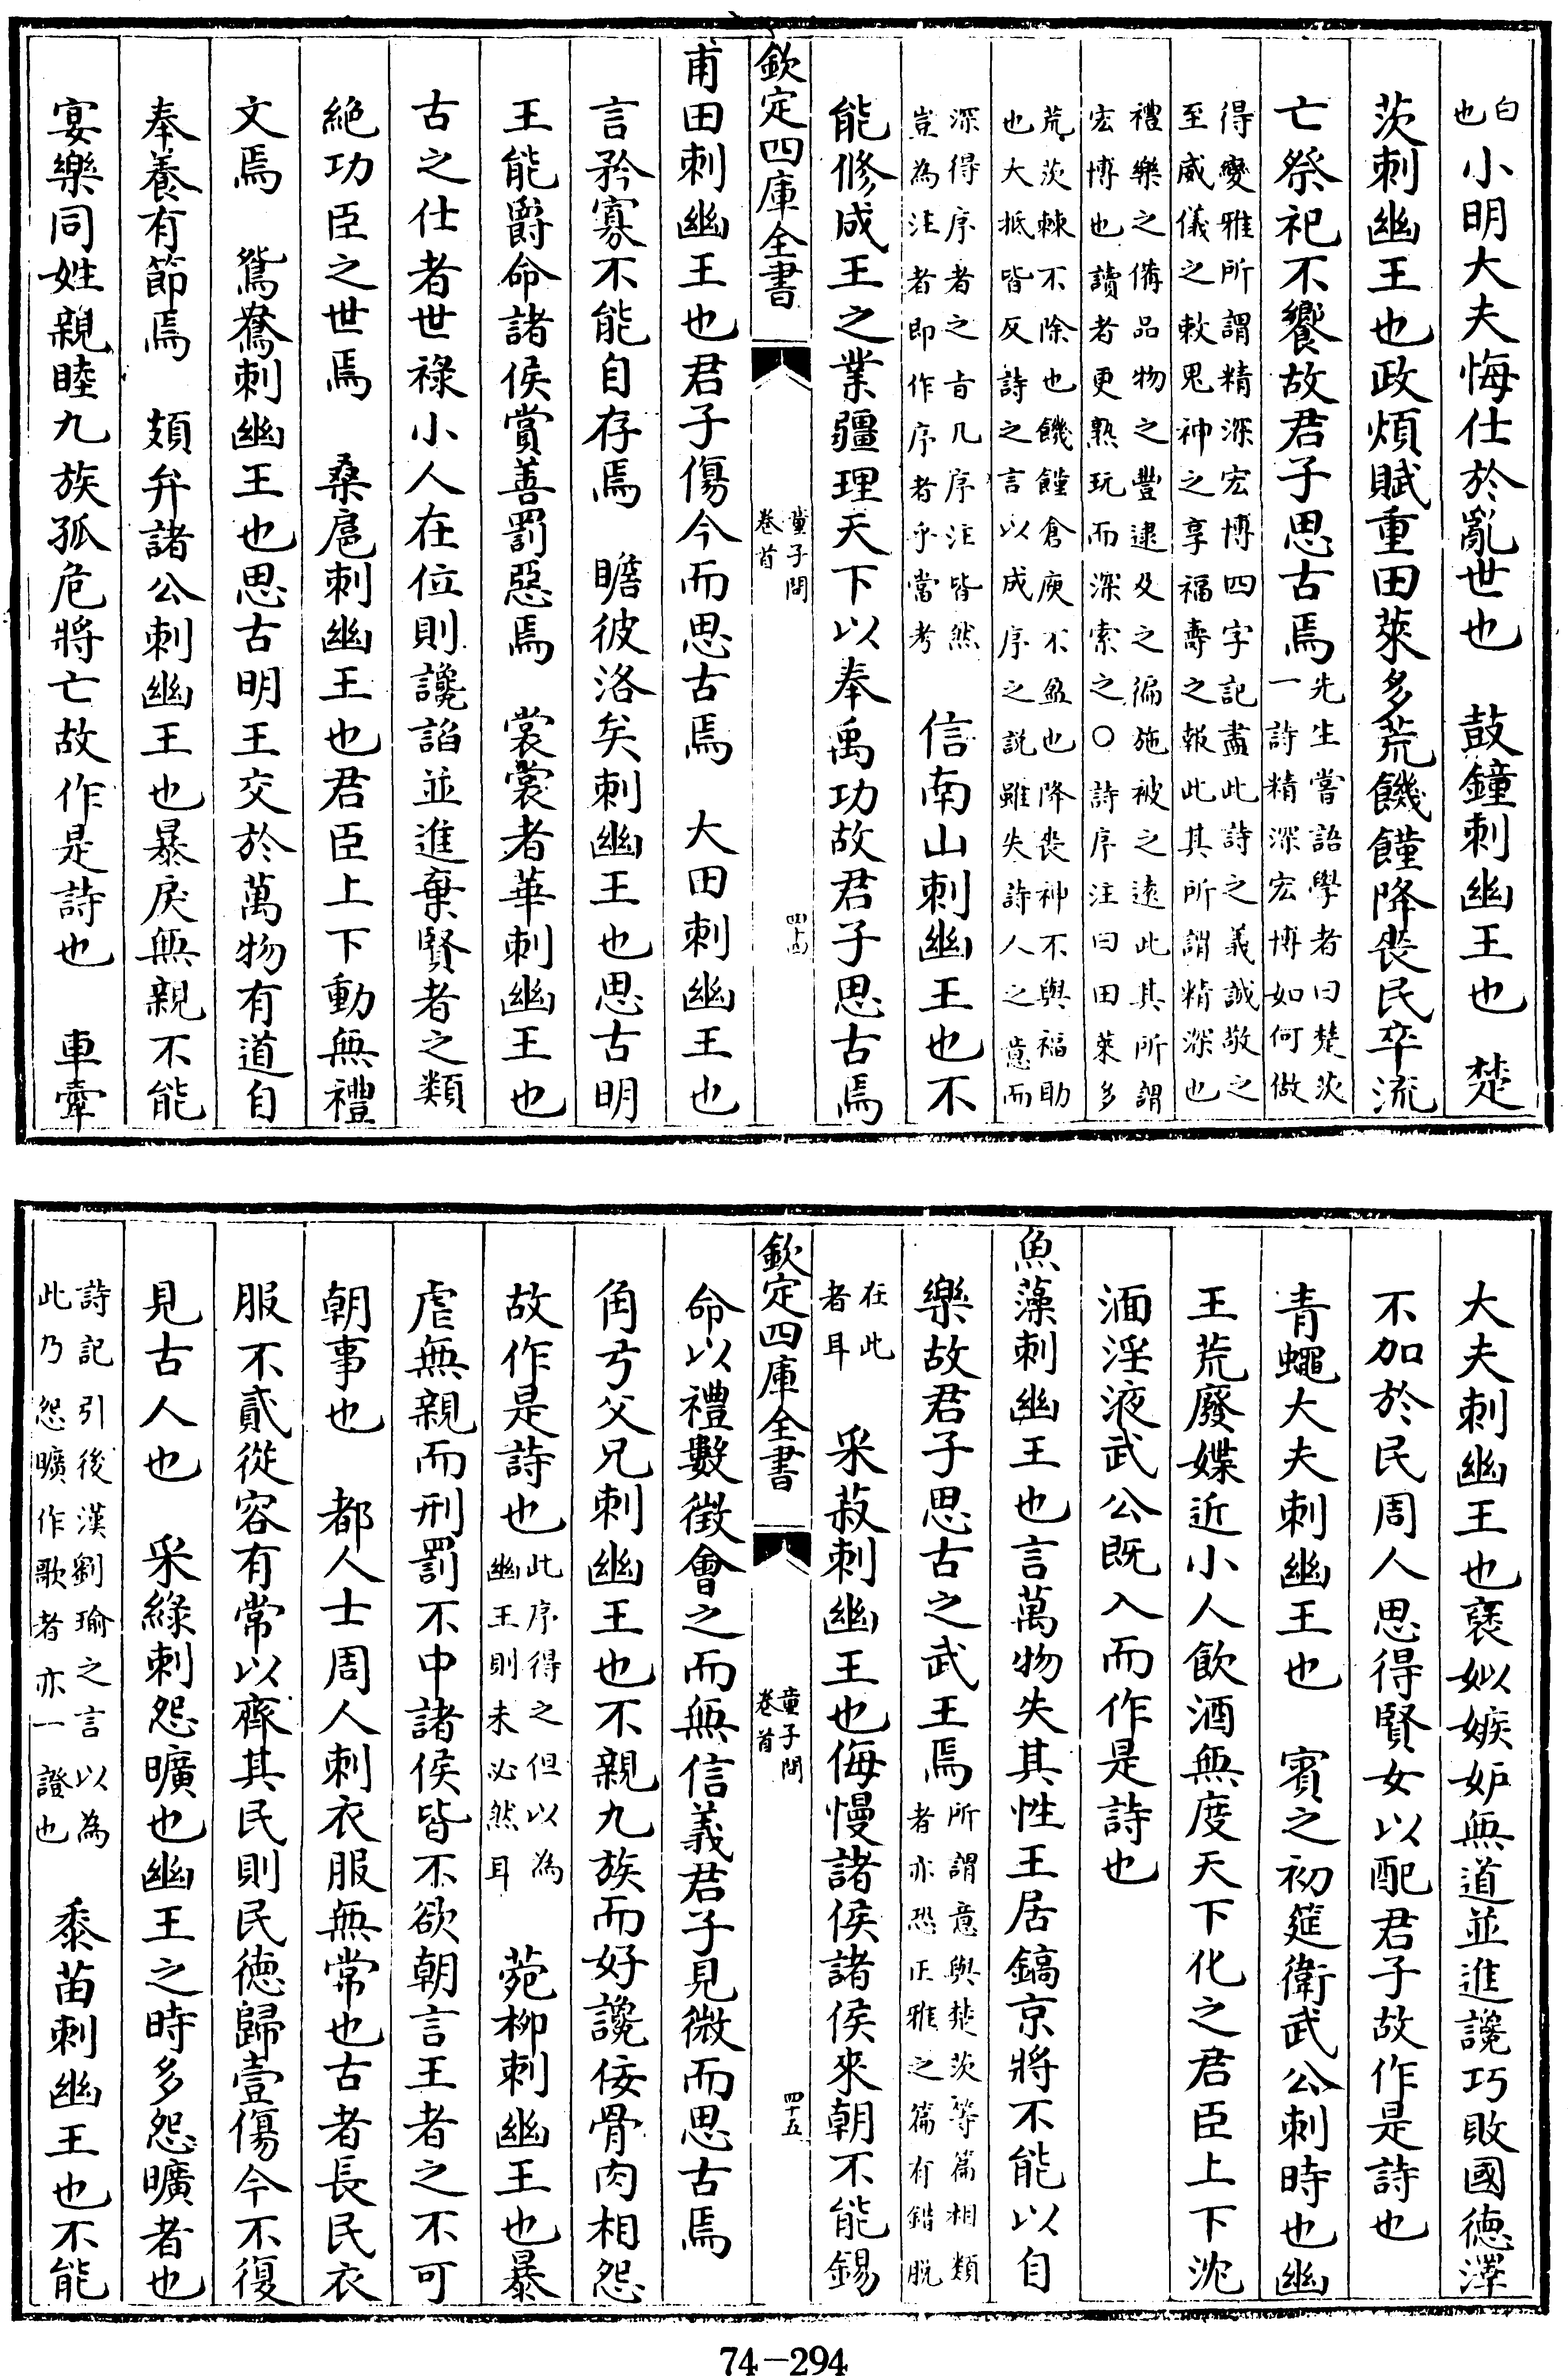 白也　小明大夫悔仕於亂世也　鼓鐘刺幽王也　楚
茨刺幽王也政煩賦重田萊多荒饑饉降喪民卒流
亡祭祀不饗故君子思古焉先生嘗語學者曰楚茨一詩精深宏博如何做
得變雅所謂精深宏博四字記盡此詩之義誠敬之至威儀之敕鬼神之享福壽之報此其所謂精深也
禮樂之備品物之豐逮及之徧施被之遠此其所謂宏博也讀者更熟玩而深索之○詩序注曰田萊多
荒茨棘不除也饑饉倉庾不盈也降喪神不與福助也大抵皆反詩之言以成序之説雖失詩人之意而
深得序者之旨凡序注皆然豈為注者即作序者乎當考　信南山刺幽王也不
能修成王之業疆理天下以奉禹功故君子思古焉
欽定四庫全書　童子問卷首　四十四
甫田刺幽王也君子傷今而思古焉　大田刺幽王也
言矜寡不能自存焉　瞻彼洛矣刺幽王也思古明
王能爵命諸侯賞善罰惡焉　裳裳者華刺幽王也
古之仕者世祿小人在位則讒諂並進棄賢者之類
絶功臣之世焉　桑扈刺幽王也君臣上下動無禮
文焉　鴛鴦刺幽王也思古明王交於萬物有道自
奉養有節焉　頍弁諸公刺幽王也暴戾無親不能
宴樂同姓親睦九族孤危將亡故作是詩也　車舝
大夫刺幽王也襃姒嫉妒無道並進讒巧敗國德澤
不加於民周人思得賢女以配君子故作是詩也
青蠅大夫刺幽王也　賓之初筵衛武公刺時也幽
王荒廢媟近小人飲酒無度天下化之君臣上下沈
湎淫液武公既入而作是詩也
魚藻刺幽王也言萬物失其性王居鎬京將不能以自
樂故君子思古之武王焉所謂意與楚茨等篇相類者亦恐正雅之篇有錯脫
在此者耳　采菽刺幽王也侮慢諸侯諸侯來朝不能錫
欽定四庫全書　童子問卷首　四十五
命以禮數徵會之而無信義君子見微而思古焉
角弓父兄刺幽王也不親九族而好讒佞骨肉相怨
故作是詩也此序得之但以為幽王則未必然耳　菀柳刺幽王也暴
虐無親而刑罰不中諸侯皆不欲朝言王者之不可
朝事也　都人士周人刺衣服無常也古者長民衣
服不貳從容有常以齊其民則民德歸壹傷今不復
見古人也　采綠刺怨曠也幽王之時多怨曠者也
詩記引後漢劉瑜之言以為此乃怨曠作歌者亦一證也　黍苗刺幽王也不能
74-294